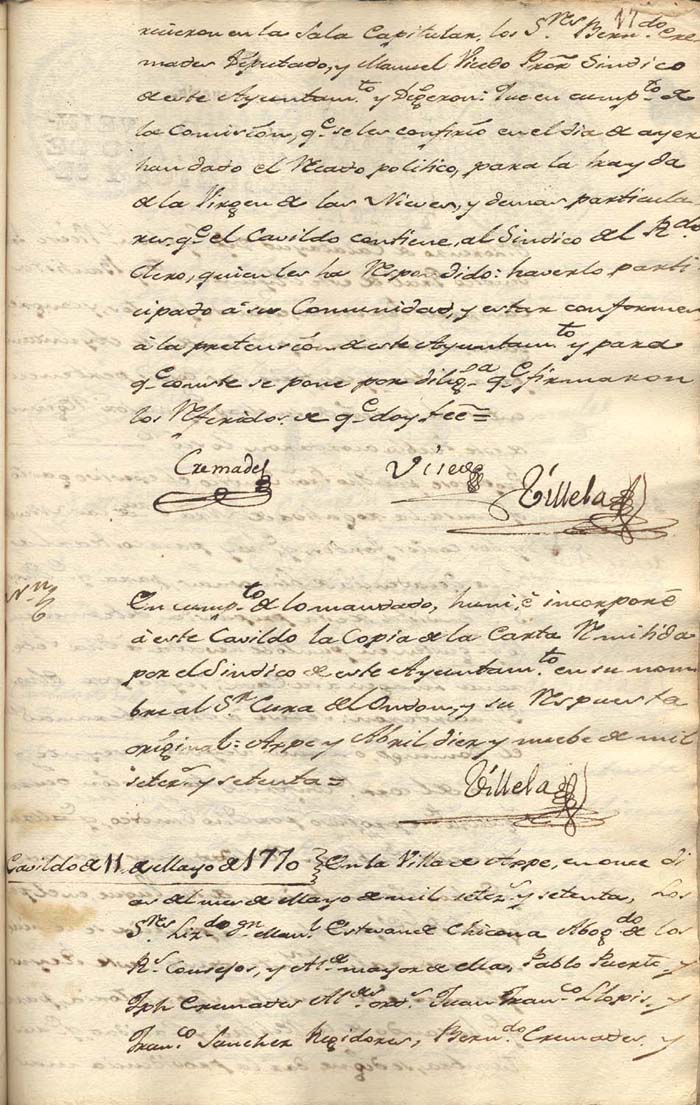 17
recieron en la Sala Capitular, los S.res Bern.do Cre
mades Deputado, y Manuel Vicedo Pror̃ Sindico
de este Ayuntam.to y Digeron: Que en cump.to de
la Comision, q.e se les confirió en el dia de ayer
han dado el Recado politico, para la trayda
de la Virgen de las Nieves, y demas particula
res, q.e el Cavildo contiene, al Sindico del R.do
Clero, quien les ha Respondido: haverlo parti
cipado á su Comunidad, y estar conformes
á la pretension de este Ayuntam.to y para
q.e conste se pone por dilig.a q.e firmaron
los Referidos de q.e doy feé=
Cremades Vicedo Villela
En cump.to de lo mandado, huní, é incorporé
á este Cavildo la Copia de la Carta Remitida
por el Sindico de este Ayuntam.to en su nom
bre al S.r Cura del Ondon, y su Respuesta
original: Aspe y Abril diez y nuebe de mil
seteź.s y setenta=
Villela
Cavildo de 11 de Mayo de 1770 En la Villa de Aspe, en once di
as del mes de Mayo de mil setez.s y setenta, Los
S.res Liz.do Dn Man.l Estevan de Chicona Abog.do de los
R.s Consejos, y Al.de mayor de ella, Pablo Puerto, y
Jph Cremades Al.des ord.s Juan Fran.co Llopis, y
Fran.co Sanchez Regidores, Bern.do Cremades, y